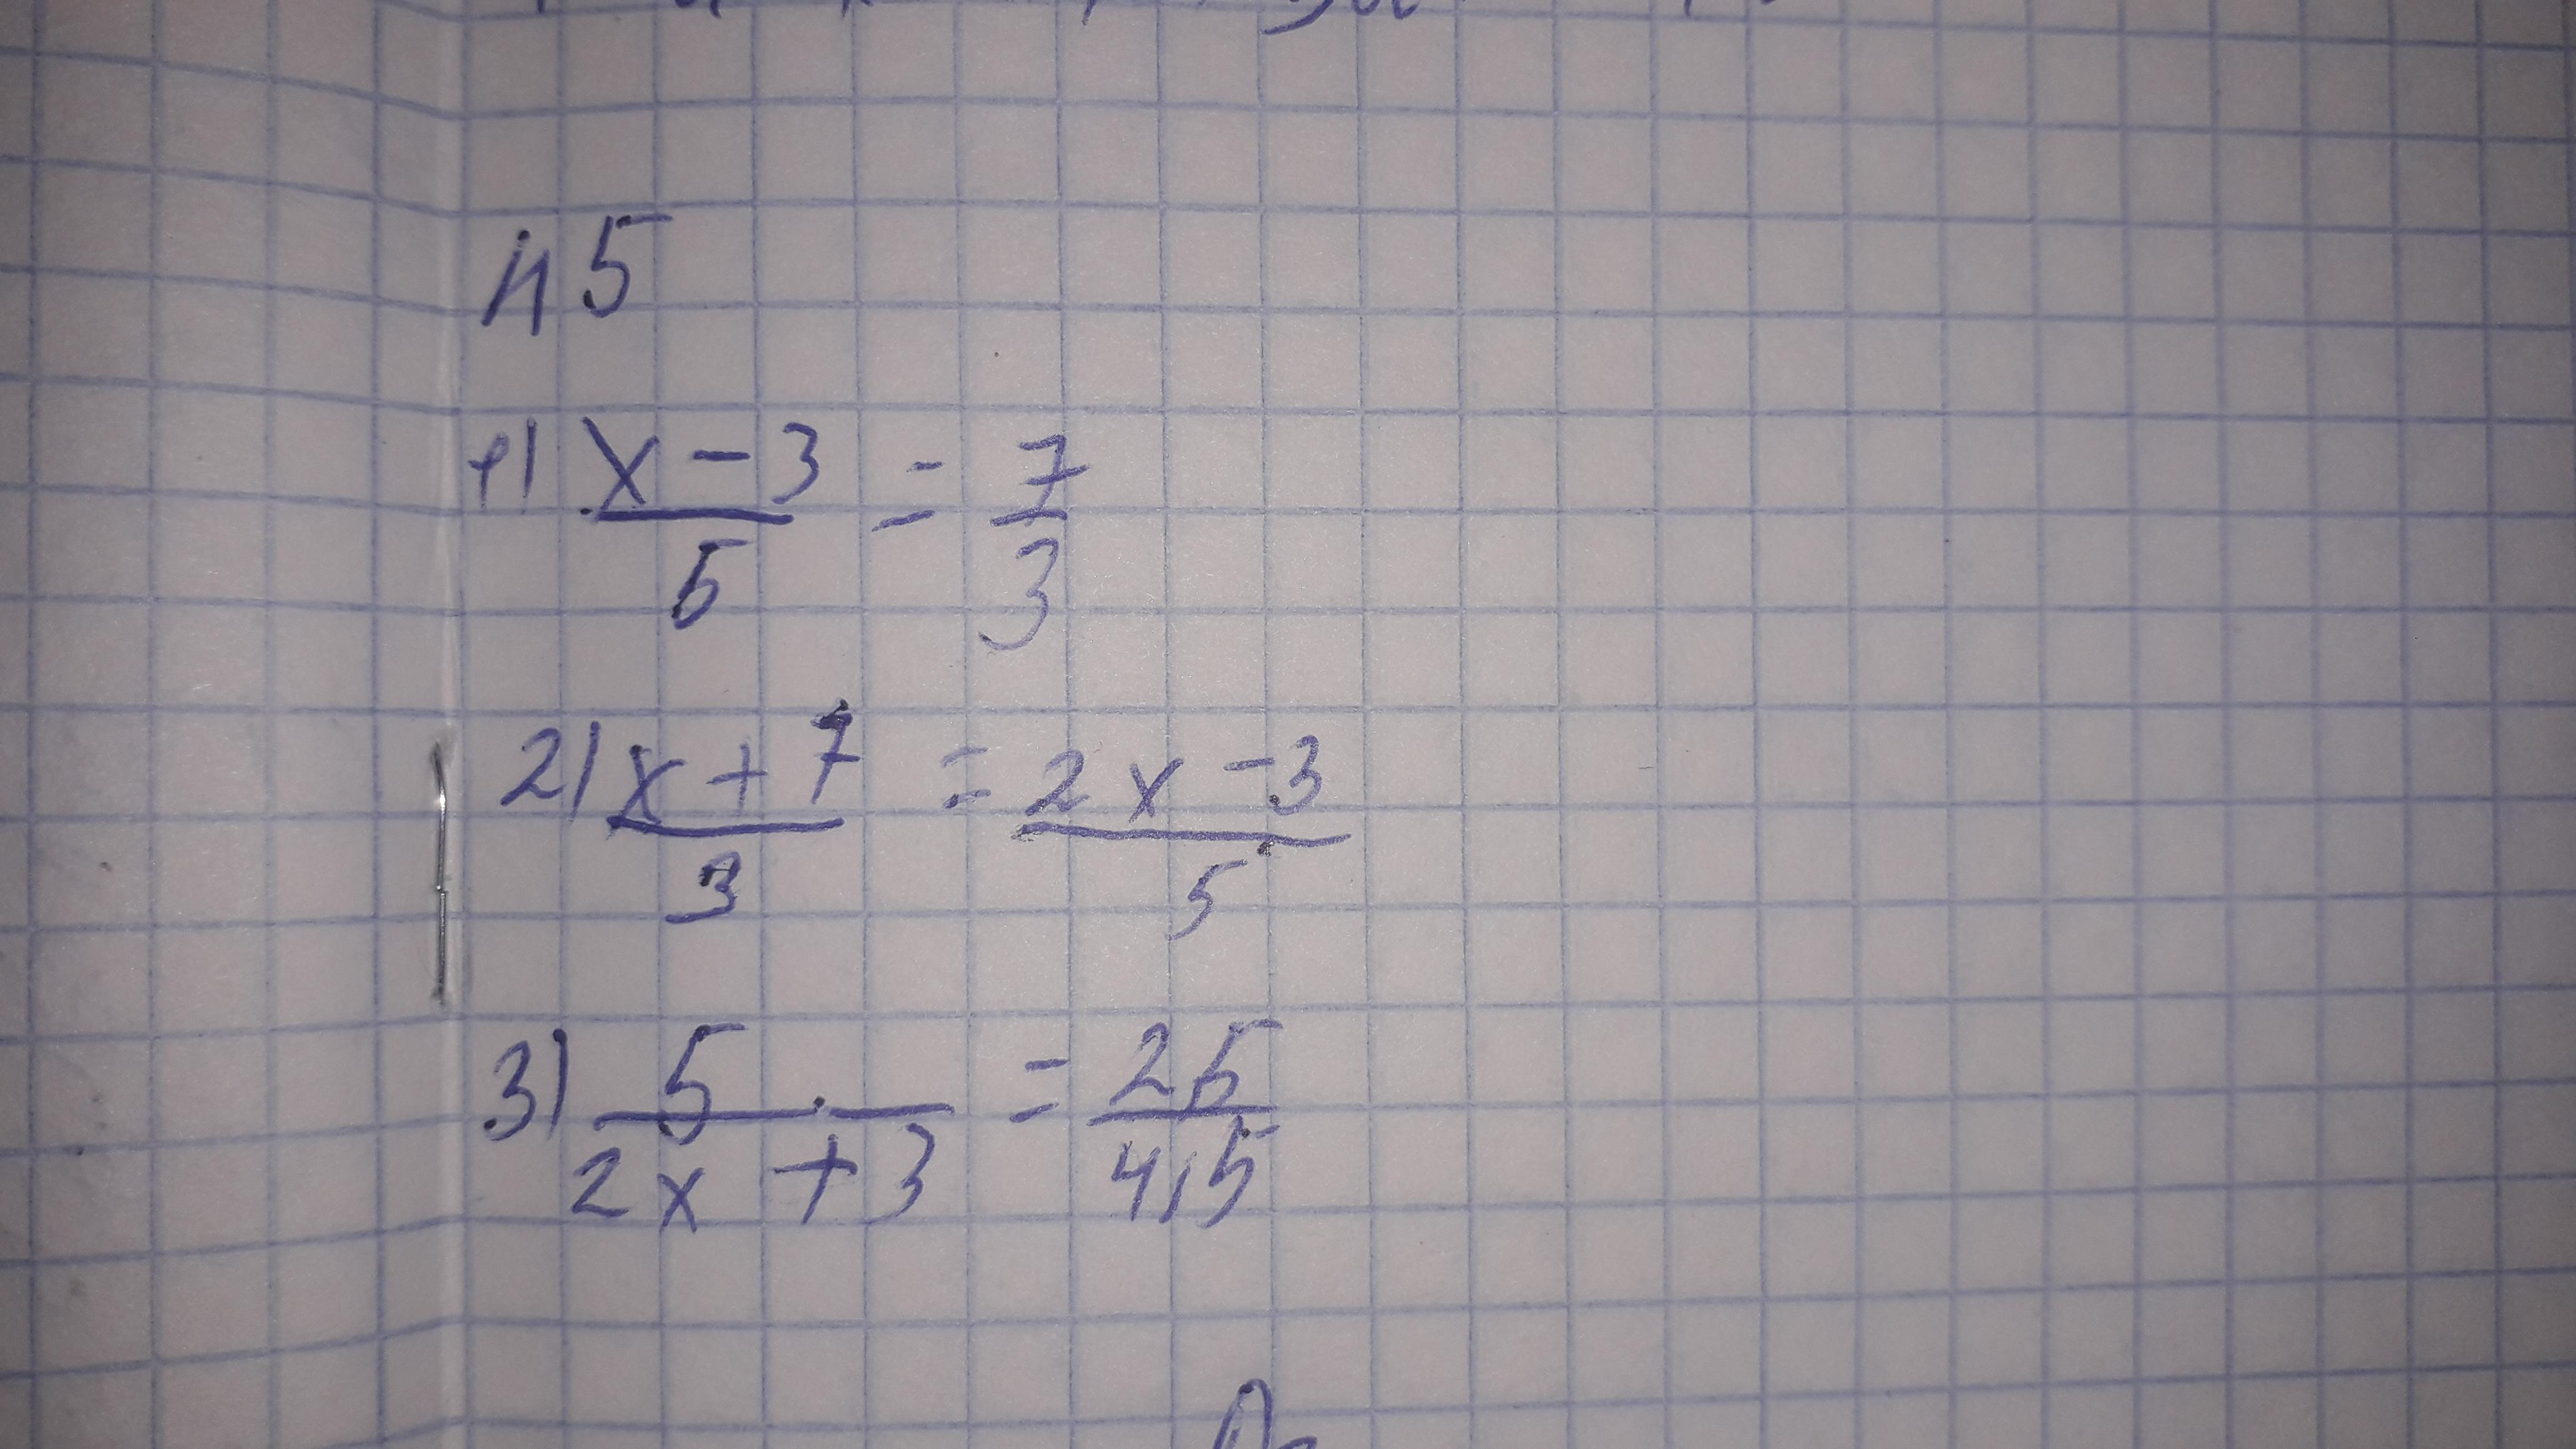 н 5
1) x - 3 / 6 = 7 / 3
2) x + 7 / 3 = 2x - 3 / 5
3) 5 / 2x + 3 = 25 / 4,5